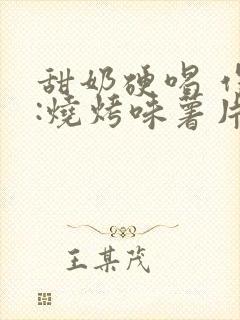 甜奶硬唱
:燒烤味薯片
王某茂